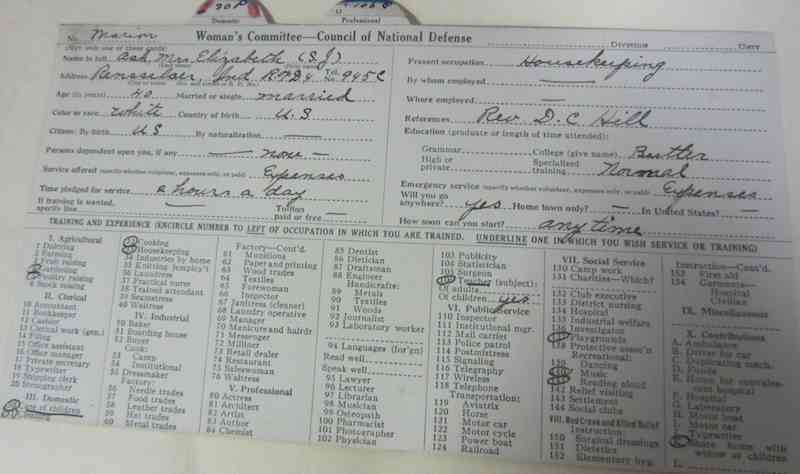 90P
Domestic
Professional
No. Marion
Woman's Committee—Council of National Defense
Division
City
Name in full Ash, Mrs. Elizabeth (S. J)
Address Rensselaer, Ind R.R.D 4 Tel. 945 C
Age (in years) 40 Married or single married
Color or race White Country of birth U.S
Citizen: By birth US By naturalization
Persons dependent upon you, if any — none —
Service offered (specify whether volunteer, expenses only, or paid) Expenses
Time pledged for service 2 hours a day
If training is wanted, specify line — Tuition paid or free —
Present occupation Housekeeping
By whom employed —
Where employed —
References Rev. D. C Hill
Education (graduate or length of time attended):
Grammar College (give name) Buttler
High or private Specialized training Normal
Emergency service (specify whether volunteer, expenses only, or paid) Expenses
Will you go anywhere? yes Home town only? — In United States? —
How soon can you start? any time
TRAINING AND EXPERIENCE (ENCIRCLE NUMBER TO LEFT OF OCCUPATION IN WHICH YOU ARE TRAINED. UNDERLINE ONE IN WHICH YOU WISH SERVICE OR TRAINING)
I. Agricultural
1 Dairying
2 Farming
3 Fruit raising
Gardening
Poultry raising
6 Stock raising
II. Clerical
10 Accountant
11 Bookkeeper
12 Cashier
13 Clerical work (gen.)
14 Filing
15 Office assistant
16 Office manager
17 Private secretary
18 Typewriter
19 Shipping clerk
20 Stenographer
III. Domestic
Care of children
Cooking
Housekeeping
34 Industries by home
35 Knitting (employ't)
36 Laundress
37 Practical nurse
38 Trained attendant
39 Seamstress
40 Waitress
IV. Industrial
50 Baker
51 Boarding house
52 Buyer
Cook:
53 Camp
54 Institutional
55 Dressmaker
Factory:
56 Needle trades
57 Food trades
58 Leather trades
59 Hat trades
60 Metal trades
Factory—Cont'd.
61 Munitions
62 Paper and printing
63 Wood trades
64 Textiles
65 Forewoman
66 Inspector
67 Janitress (cleaner)
68 Laundry operative
69 Manager
70 Manicure and hairdr
71 Messenger
72 Milliner
73 Retail dealer
74 Restaurant
75 Saleswoman
76 Waitress
V. Professional
80 Actress
81 Architect
82 Artist
83 Author
84 Chemist
85 Dentist
86 Dietician
87 Draftsman
88 Engineer
Handicrafts:
89 Metals
90 Textiles
91 Woods
92 Journalist
93 Laboratory worker
94 Languages (for'gn)
Read well
Speak well
95 Lawyer
96 Lecturer
97 Librarian
98 Musician
99 Osteopath
100 Pharmacist
101 Photographer
102 Physician
103 Publicity
104 Statistician
105 Surgeon
Teacher (subject):
Of adults
Of children yes
VI. Public Service
110 Inspector
111 Institutional mgr.
112 Mail carrier
113 Police patrol
114 Postmistress
115 Signaling
116 Telegraphy
117 Wireless
118 Telephone
Transportation:
119 Aviatrix
120 Horse
121 Motor car
122 Motor cycle
123 Power boat
124 Railroad
VII. Social Service
130 Camp work
131 Charities—Which?
132 Club executive
133 District nursing
134 Hospital
135 Industrial welfare
136 Investigator
Playgrounds
138 Protective assoc'n
Recreational:
139 Dancing
Music
Reading aloud
142 Relief visiting
143 Settlement
144 Social clubs
VIII. Red Cross and Allied Relief
Instruction—
150 Surgical dressings
151 Dietetics
152 Elementary hyg.
Instruction—Cont'd.
153 First aid
154 Garments—
Hospital
Civilian
IX. Miscellaneous
X. Contributions
A. Ambulance
B. Driver for car
C. Duplicating mach.
D. Funds
E. Home for convalescent hospital
F. Hospital
G. Laboratory
H. Motor boat
I. Motor car
Typewriter
Share home with widow or children
L.